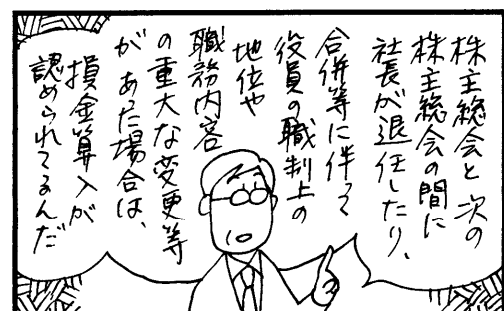 株主総会と次の
株主総会の間に
社長が退任したり、
合併等に伴って
役員の職制上の
地位や
職務内容
の重大な変更等
があった場合は、
損金算入が
認められてるんだ